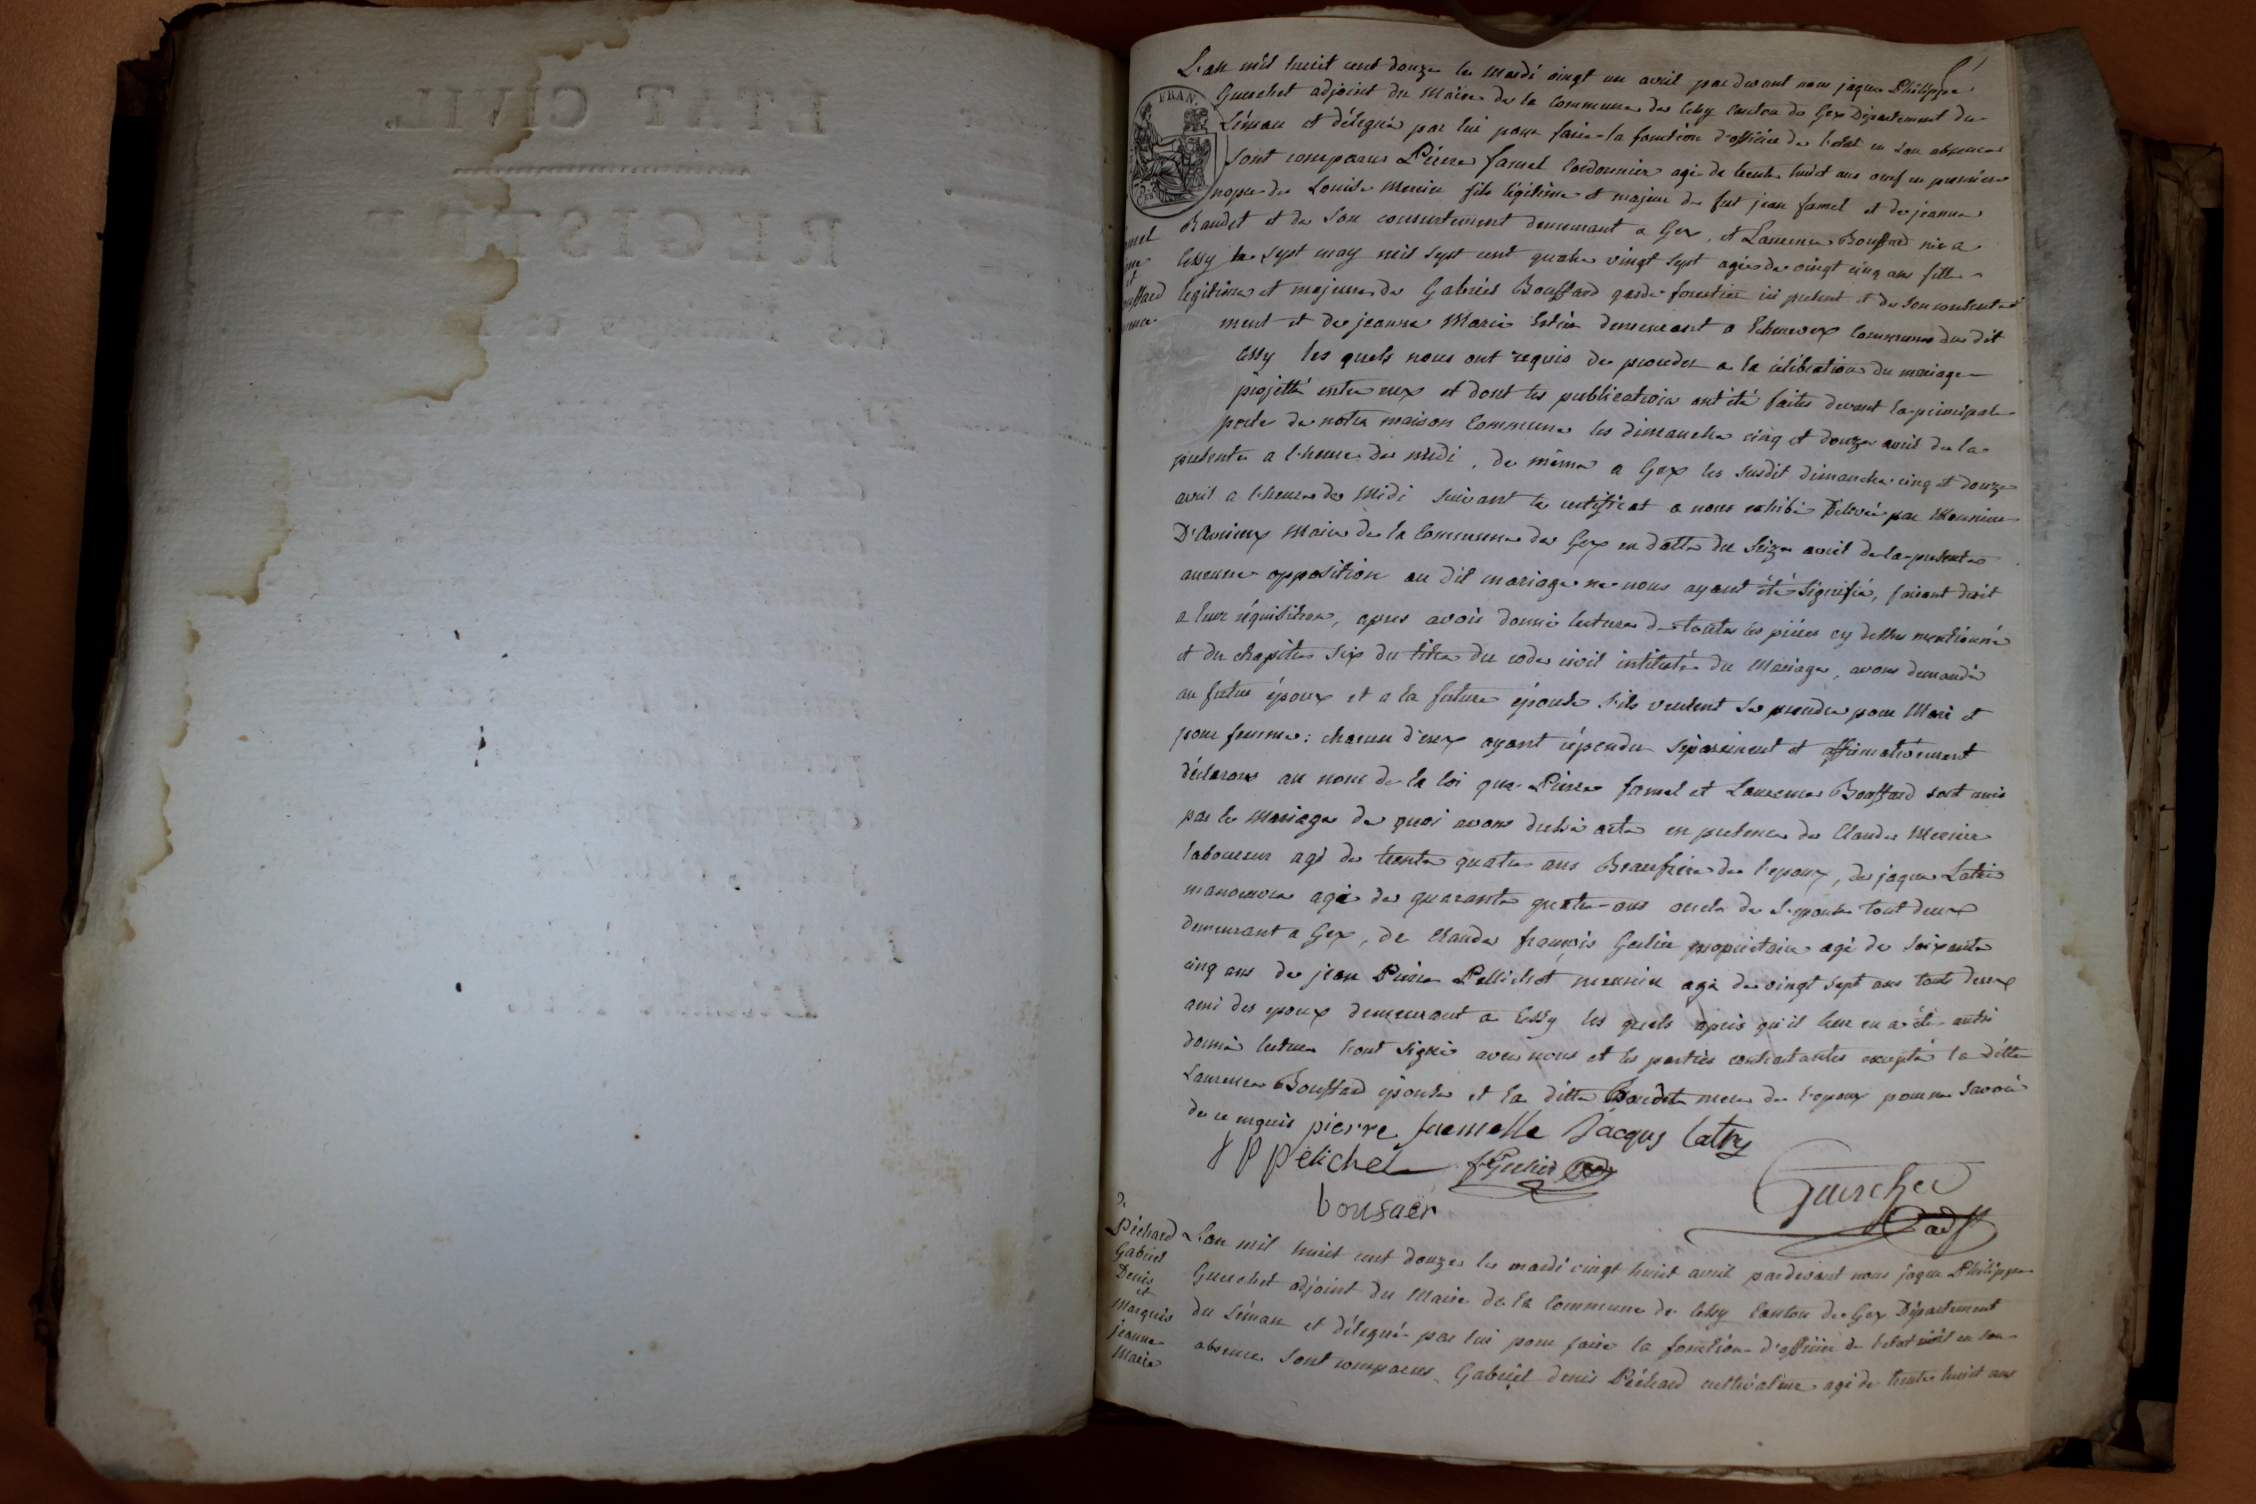 ETAT CIVIL.
REGISTRE
L'an mil huit cent douze le mardi vingt un avril pardevant nous jaque Philippe
Guerchet adjoint du Maire de la Commune de Cessy Canton de Gex Département du
Léman et délégué par lui pour faire la fonction d'officier de l'état en son absence
FRAN.
sont comparus Pierre famel Cordonnier agé de trente huit ans veuf en première
nopce de Louise Mercier fils légitime et majeur de fut jean famel et de jeanne
Baudet et de son consentement demeurant a Gex, et Laurence Bouffard née a
Cessy le sept may mil sept cent quatre vingt sept agée de vingt cinq ans fille
légitime et majeure de Gabriel Bouffard garde forestier ici présent et de son consente
ment et de jeanne Marie demeurant a Echenevex Commune du dit
Cessy les quels nous ont requis de proceder a la célébration du mariage
projetté entre eux et dont les publications ont été faites devant la principale
porte de notre maison Commune les dimanche cinq et douze avril de la
présente a l'heure de midi, de même a Gex les susdit dimanche cinq et douze
avril a l'heure de Midi suivant le certificat a nous exhibé Délivré par Monsieur
Maire de la Commune de Gex en datte du seize avril de la présente
aucune opposition au dit mariage ne nous ayant été signifié, faisant droit
a leur réquisition, apres avoir donné lecture de toute les pièces cy dessus mentionné
et du chapitre six du titre du code civil intitulé du Mariage, avons demandé
au futur époux et a la future épouse s'ils veulent se prendre pour Mari et
pour femme: chacun d'eux ayant répondu séparément et affirmativement
déclarons au nom de la loi que Pierre famel et Laurence Bouffard sont unis
par le Mariage de quoi avons dressé acte en présence de Claude Mercier
laboureur agé de trente quatre ans Beaufrère de l'epoux, de jaque Latri
manoeuvre agé de quarante quatre ans oncle de l'epouse tout deux
demeurant a Gex, de Claude françois Gerlier propriétaire agé de soixante
cinq ans de jean Pierre Pellichet meunier agé de vingt sept ans touts deux
ami des epoux demeurant a Cessy les quels après qu'il leur en a été aussi
donné lecture l'ont signé avec nous et les parties contractantes excepté la ditte
Laurence Bouffard épouse et la ditte Baudet mere de l'epoux pour ne savoir
de ce enquis pierre famelle Jacqus Latry
J P Pelichet
bousaer
Guerchet
adj
Péchard
Gabriel
Denis
et
Marquis
jeanne
Marie
L'an mil huit cent douze le mardi vingt huit avril pardevant nous jaque Philippe
Guerchet adjoint du Maire de la Commune de Cessy Canton de Gex Département
du Léman et délégué par lui pour faire la fonction d'officier de l'etat civil en son
absence sont comparus Gabriel denis Péchard cultivateur agé de trente huit ans